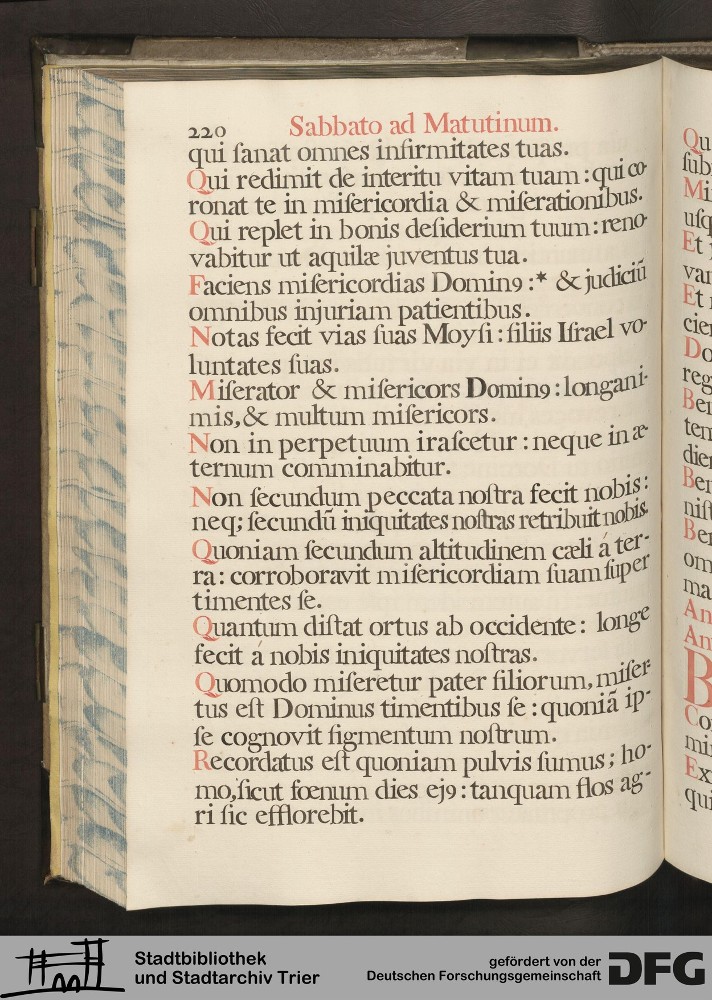 220 Sabbato ad Matutinum.
qui ſanat omnes infirmitates tuas.
Qui redimit de interitu vitam tuam : qui co-
ronat te in miſericordia & miſerationibus.
Qui replet in bonis deſiderium tuum : reno-
vabitur ut aquilæ juventus tua.
Faciens miſericordias Domin9 :* & judiciū
omnibus injuriam patientibus.
Notas fecit vias ſuas Moyſi : filiis Iſrael vo-
luntates ſuas.
Miſerator & miſericors Domin9 : longani-
mis, & multum miſericors.
Non in perpetuum iraſcetur : neque in æ-
ternum comminabitur.
Non ſecundum peccata noſtra fecit nobis :
neq; ſecundū iniquitates noſtras retribuit nobis.
Quoniam ſecundum altitudinem cæli á ter-
ra : corroboravit miſericordiam ſuam ſuper
timentes ſe.
Quantum diſtat ortus ab occidente : longe
fecit á nobis iniquitates noſtras.
Quomodo miſeretur pater filiorum, miſer-
tus eſt Dominus timentibus ſe : quoniã ip-
ſe cognovit figmentum noſtrum.
Recordatus eſt quoniam pulvis ſumus ; ho-
mo, ſicut fœnum dies ej9 : tanquam flos ag-
ri ſic efflorebit.
Qu
ſub
Mi
uſq
Et
van
Et
cien
Do
reg
Ben
tem
dien
Ben
niſt
Ben
om
ma
An
An
B
Co
mi
Ex
qui
Stadtbibliothek
und Stadtarchiv Trier
gefördert von der
Deutschen Forschungsgemeinschaft
DFG